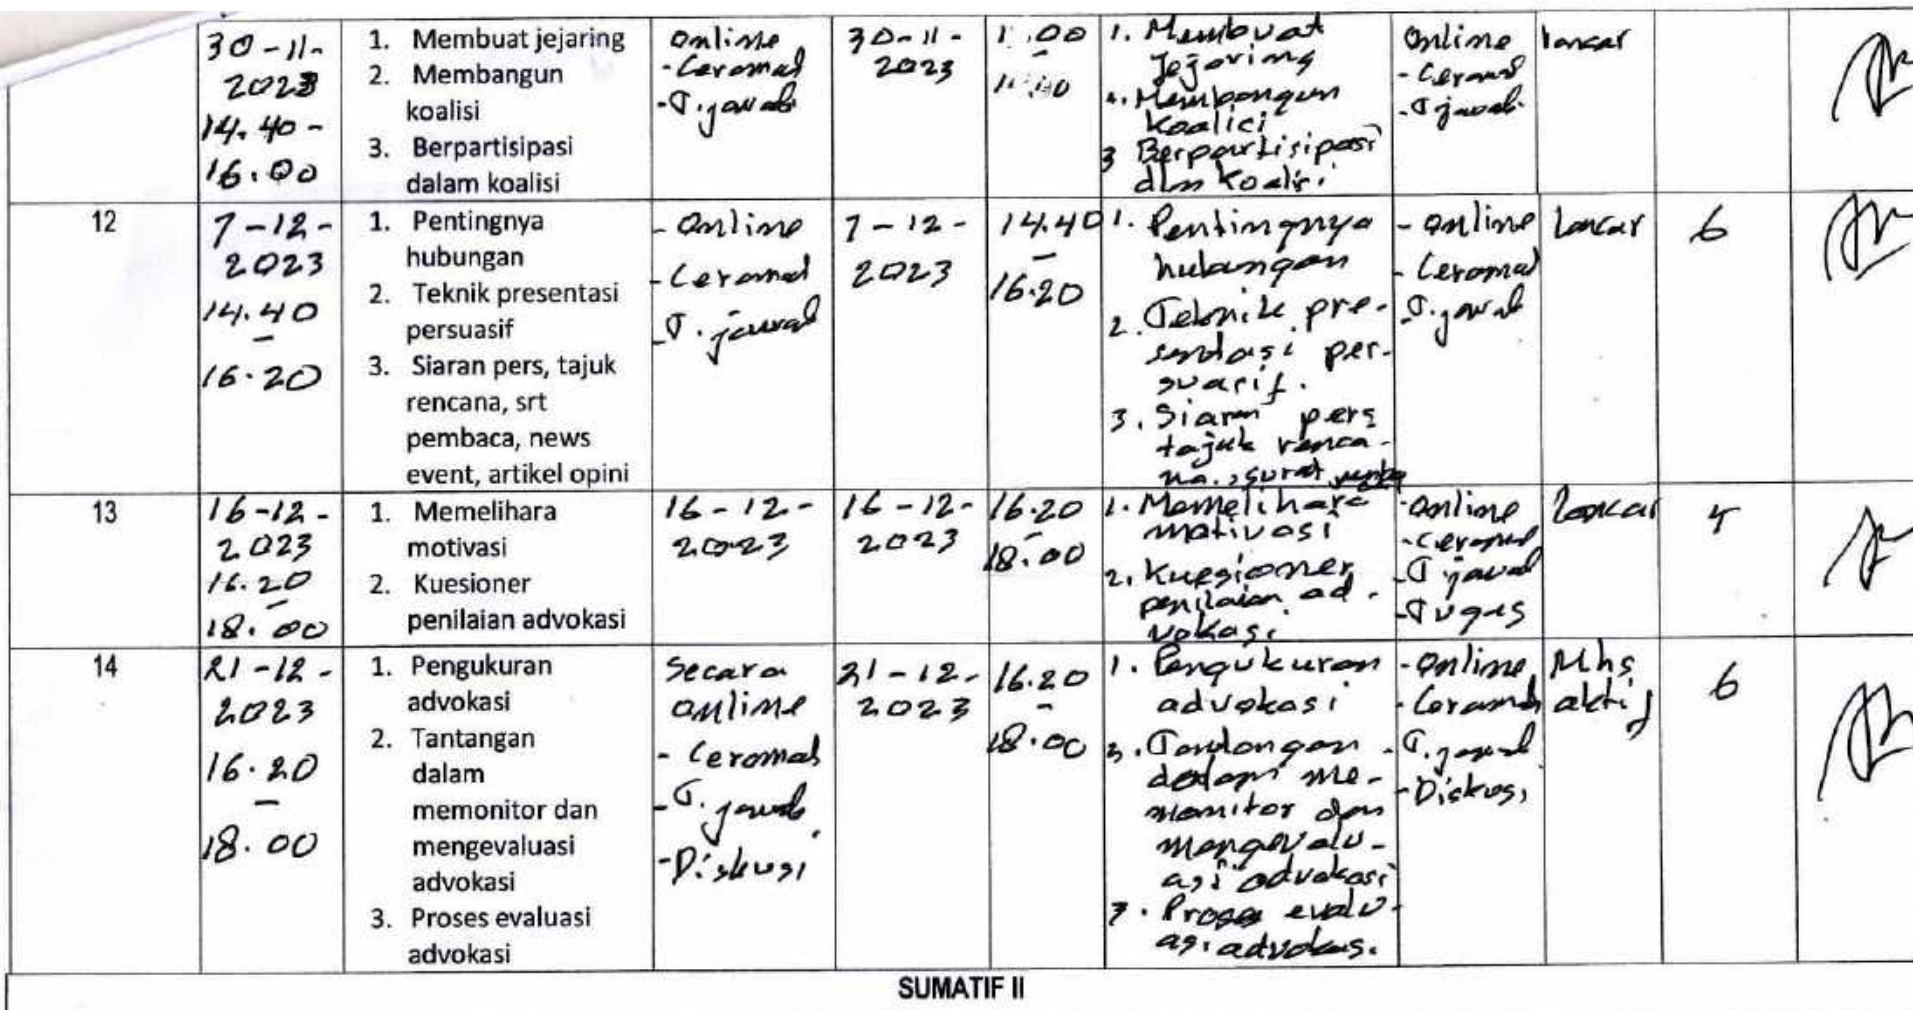 30-11-
2023
14.40 -
16.00
1. Membuat jejaring
2. Membangun
koalisi
3. Berpartisipasi
dalam koalisi
Online
- Ceramah
- T. jawab
30-11-
2023
1. Membuat
Jejaring
2. Membangun
Koalisi
3 Berpartisipasi
dlm Koalisi
Online
- Ceramah
- T jawab
lancar
12
7-12-
2023
14.40
-
16.20
1. Pentingnya
hubungan
2. Teknik presentasi
persuasif
3. Siaran pers, tajuk
rencana, srt
pembaca, news
event, artikel opini
- Online
- Ceramah
- T. jawab
7-12-
2023
14.40
-
16.20
1. Pentingnya
hubungan
2. Teknik pre-
sentasi per-
suasif.
3. Siaran pers
tajuk renca-
na., surat
- Online
- Ceramah
- T. jawab
Lancar
6
13
16-12-
2023
16.20
-
18.00
1. Memelihara
motivasi
2. Kuesioner
penilaian advokasi
16-12-
2023
16-12-
2023
16.20
18.00
1. Memelihara
motivasi
2. Kuesioner
penilaian ad-
vokasi
- Online
- Ceramah
- T jawab
- Tugas
Lancar
14
21-12-
2023
16.20
-
18.00
1. Pengukuran
advokasi
2. Tantangan
dalam
memonitor dan
mengevaluasi
advokasi
3. Proses evaluasi
advokasi
Secara
online
- Ceramah
- T. jawab
- Diskusi
21-12-
2023
16.20
-
18.00
1. Pengukuran
advokasi
2. Tantangan
dalam me-
monitor dan
mengevalu-
asi advokasi
3. Proses evalu-
asi advokasi.
- Online
- Ceramah
- T. jawab
- Diskusi
Mhs
aktif
6
SUMATIF II